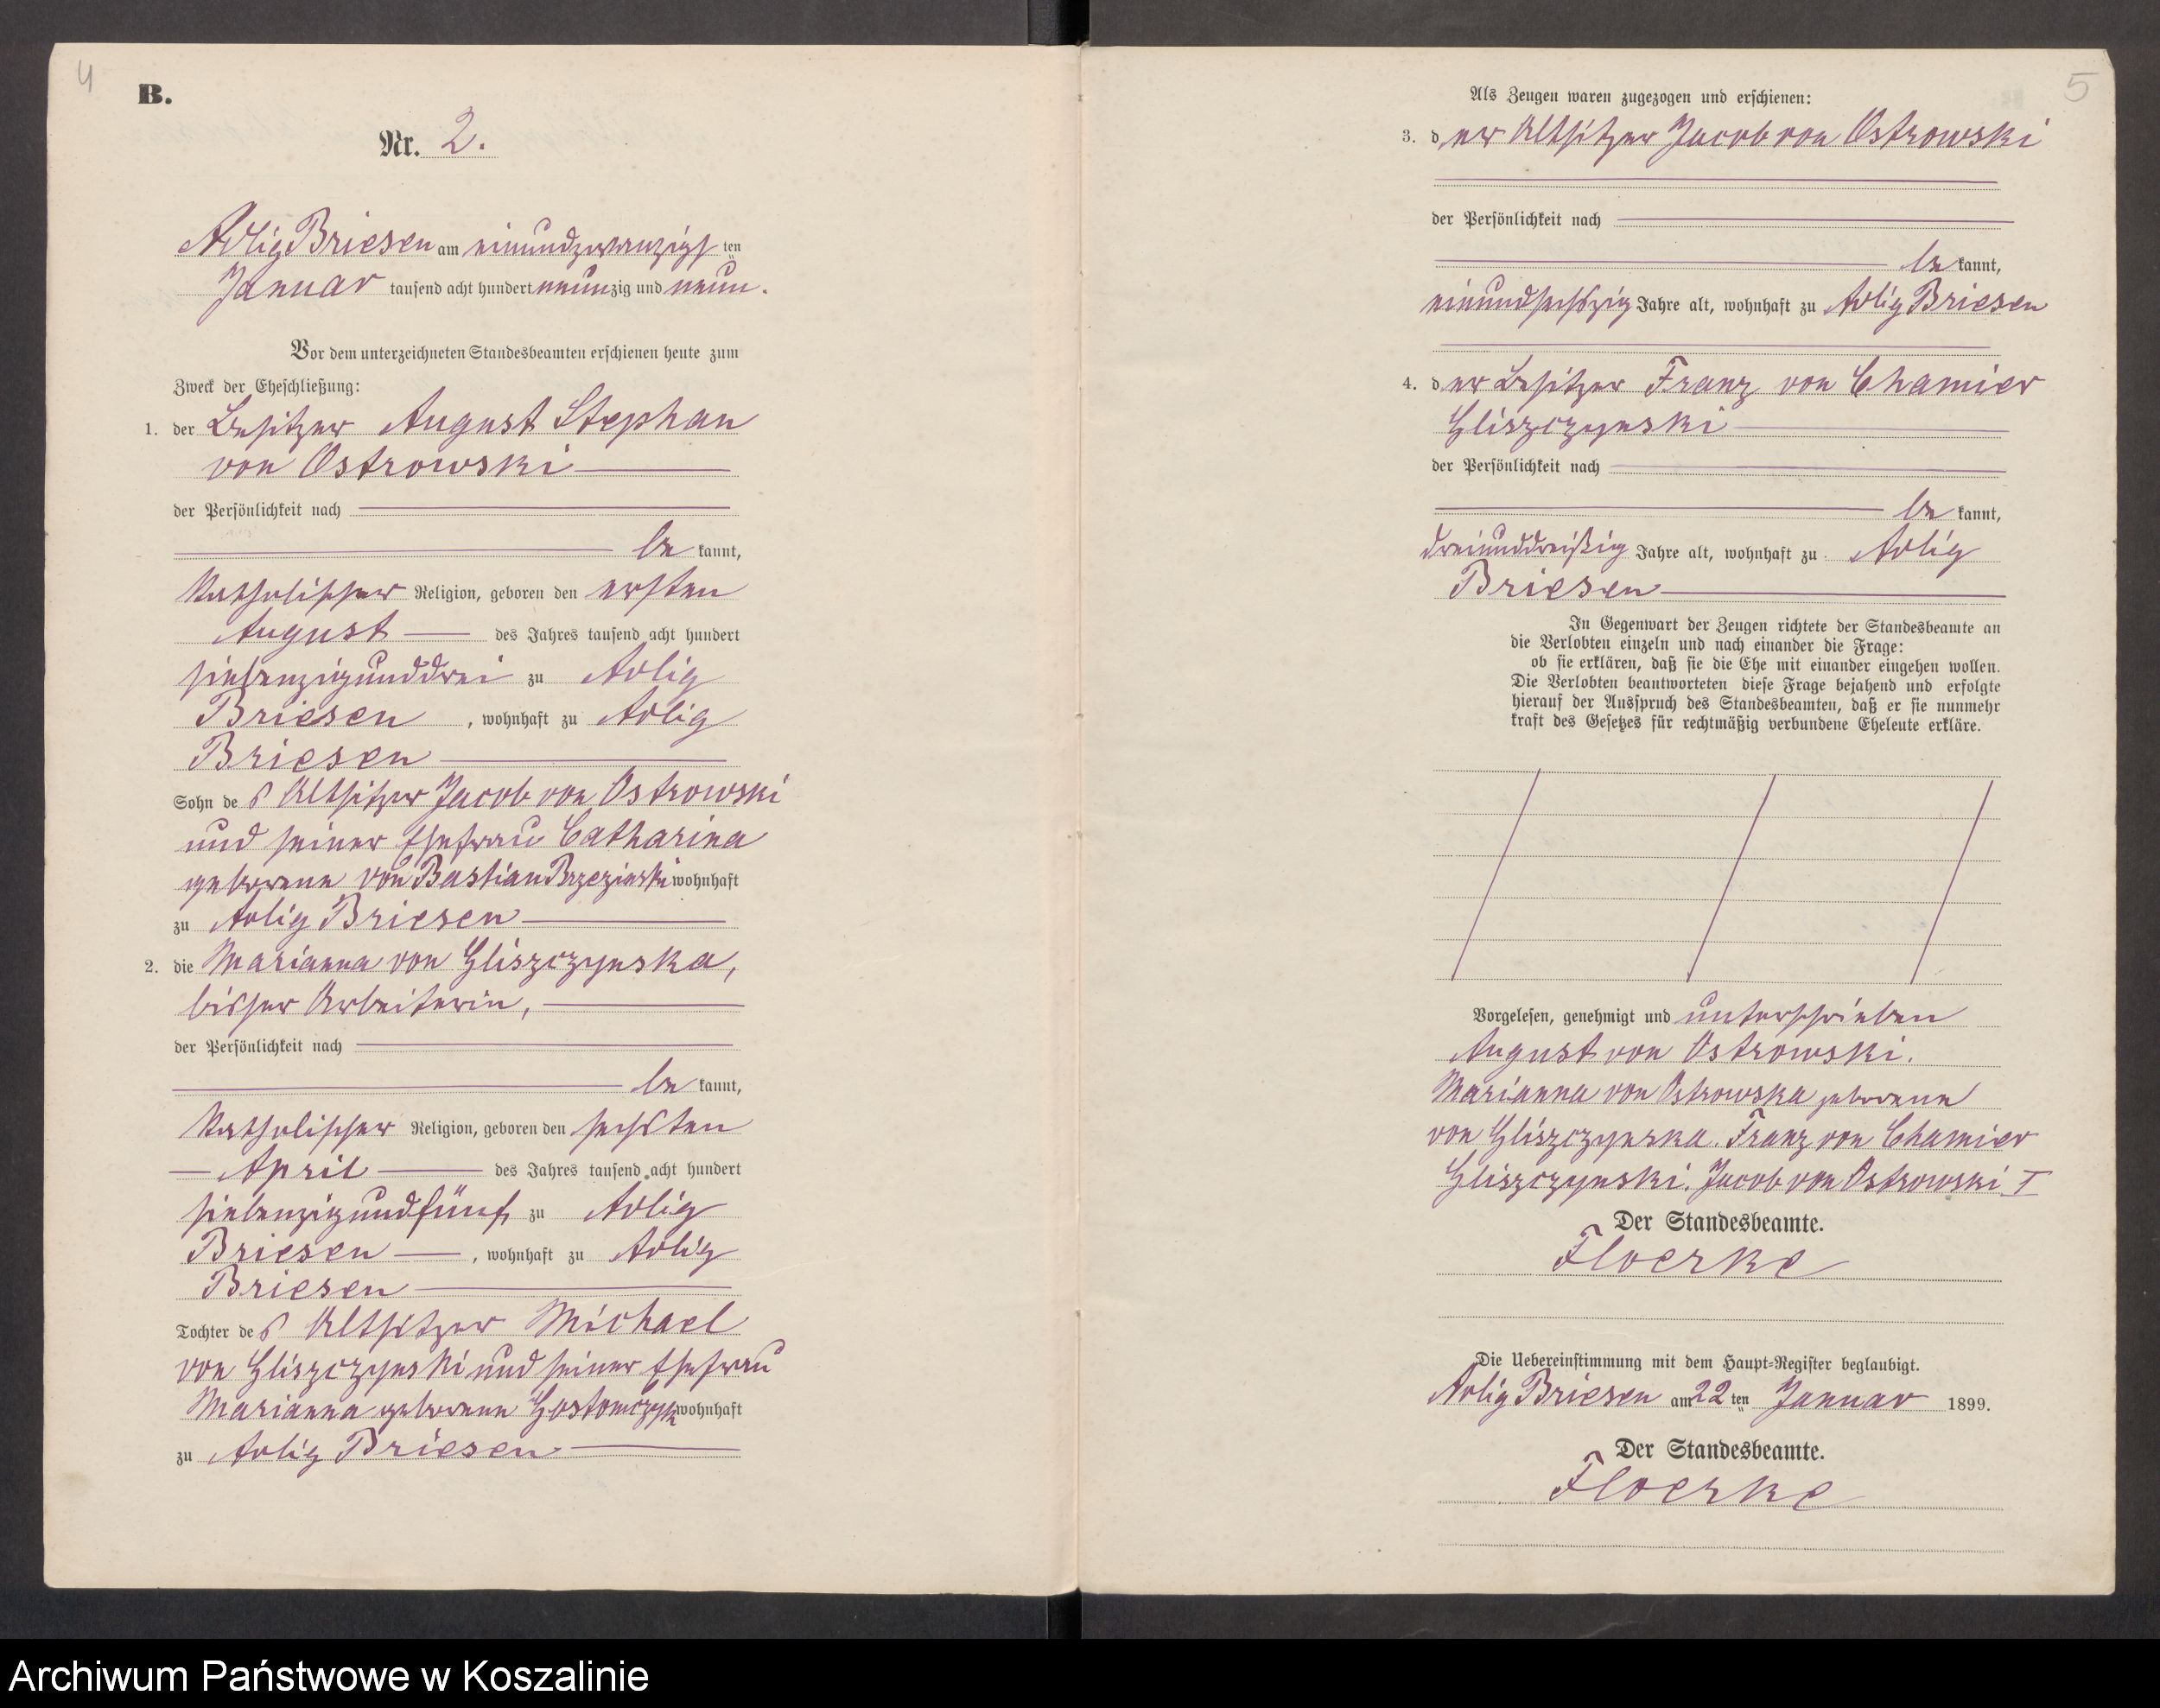 4
B.
Nr. 2.
Adlig Briesen am einundzwanzigsten
Januar tausend acht hundert neunzig und neun.
Vor dem unterzeichneten Standesbeamten erschienen heute zum
Zweck der Eheschließung:
1. der Besitzer August Stephan
von Ostrowski
der Persönlichkeit nach
be kannt,
katholischer Religion, geboren den ersten
August des Jahres tausend acht hundert
siebenzigunddrei zu Adlig
Briesen, wohnhaft zu Adlig
Briesen
Sohn des Altsitzer Jacob von Ostrowski
und seiner Ehefrau Catharina
geborene von Bastian Brzezinski wohnhaft
zu Adlig Briesen
2. die Marianna von Gliszczynska,
bisher Arbeiterin,
der Persönlichkeit nach
be kannt,
katholischer Religion, geboren den sechsten
April des Jahres tausend acht hundert
siebenzigundfünf zu Adlig
Briesen, wohnhaft zu Adlig
Briesen
Tochter des Altsitzer Michael
von Gliszczynski und seiner Ehefrau
Marianna geborene Gostomczyk wohnhaft
zu Adlig Briesen
5
Als Zeugen waren zugezogen und erschienen:
3. der Altsitzer Jacob von Ostrowski
der Persönlichkeit nach
be kannt,
einundsechszig Jahre alt, wohnhaft zu Adlig Briesen
4. der Besitzer Franz von Chamier
Gliszczynski
der Persönlichkeit nach
be kannt,
dreiunddreißig Jahre alt, wohnhaft zu Adlig
Briesen
In Gegenwart der Zeugen richtete der Standesbeamte an
die Verlobten einzeln und nach einander die Frage:
ob sie erklären, daß sie die Ehe mit einander eingehen wollen.
Die Verlobten beantworteten diese Frage bejahend und erfolgte
hierauf der Ausspruch des Standesbeamten, daß er sie nunmehr
kraft des Gesetzes für rechtmäßig verbundene Eheleute erkläre.
Vorgelesen, genehmigt und unterschrieben
August von Ostrowski.
Marianna von Ostrowska geborene
von Gliszczynska. Franz von Chamier
Gliszczynski. Jacob von Ostrowski I
Der Standesbeamte.
Floerke
Die Uebereinstimmung mit dem Haupt-Register beglaubigt.
Adlig Briesen am 22ten Januar 1899.
Der Standesbeamte.
Floerke
Archiwum Państwowe w Koszalinie